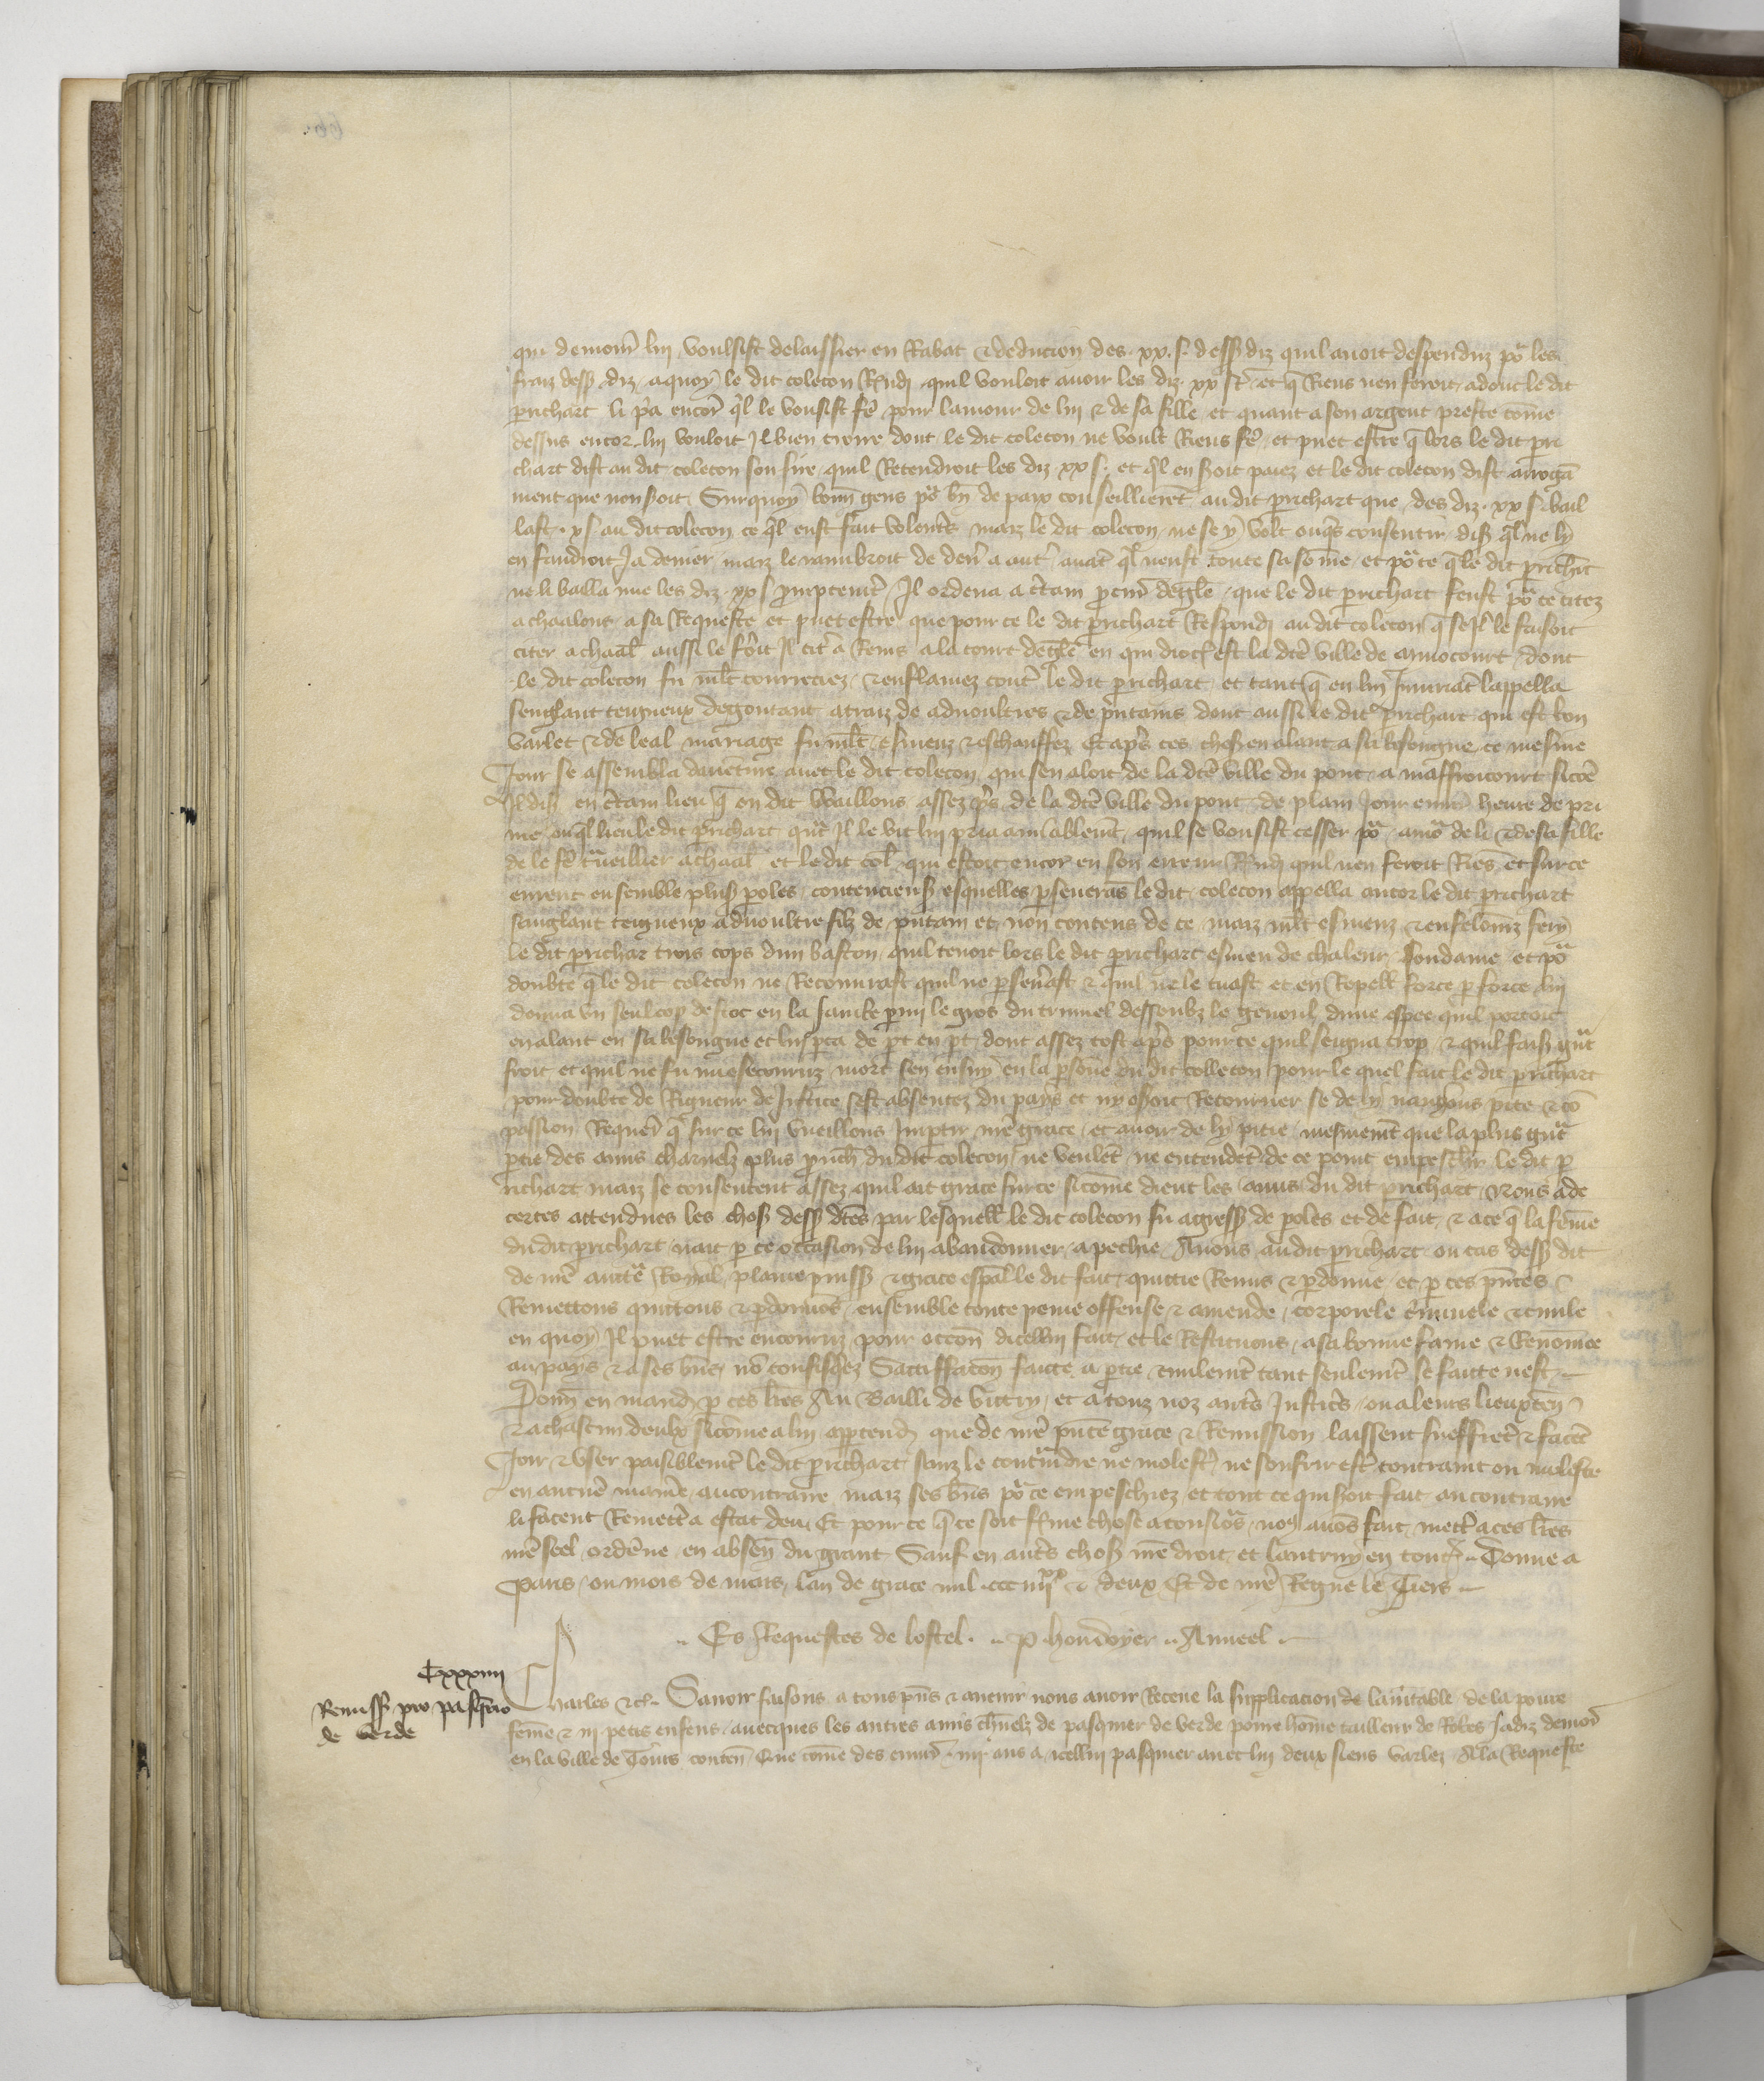 qui demoure lui voulsist delaissier en Rabat & deducion des .xx. s. dess diz quil avoit despenduz por les
fraiz dess diz aquoy le dit colecon Rndi quil vouloit avoir les diz xx s. et q Riens nen feroit adont le dit
prichart li pria encor ql le vousist fe pour lamour de lui & de sa fille et quant a son argent preste come
dessus encor lui vouloit Il bien croire dont le dit colecon ne voult Riens fe et puet estre q lors le dit pri
chart dist au dit colecon son sire quil Retendroit les diz xx s. et ql en seroit paiez et le dit colecon dist arroga
ment que non feroit Surquoy bonn gens por bn de paix conseillieret au dit prichart que des diz xx s. bail
last .x s au dit colecon ce ql eust fait volentrs maiz le dit colecon ne se y volt onqs consentir dis ql ne ly
en faudroit Ja denier maiz le ... de denr a autr avat ql neust toute sa some et por ce q le dit prichart
ne li bailla mie les diz xx s promptemt Il ordena a ctam pcur deglise que le dit prichart feust por ce citez
achaalons a sa Requeste et puet estre que pour ce le dit prichart Respondi au dit colecon q se Il le faisoit
citer achaal aussi le feroit Il citr a Reins a la court deglise en qui dioc est la dte ville de arnocourt dont
le dit colecon fu mlt courrecies & enflamez contr le dit prichart et tant q en lui Iniuriat lappella
senglant teigneux degoutant atraiz de advoultres & de putains dont aussi le dit prichart qui est bon
varlet & de leal mariage fu mlt esmeuz & eschauffez Et aprs ces choses en alant a sa besongne ce mesme
Jour se assembla daventure avec le dit colecon qui sen aloit de la dte ville du pont a maffroicourt sicoe
Il dis en ctam lieu q en dit Waillons assez prs de la dte ville du pont de plain Jour envir heure de pri
me ouql lieu le dit prichart qnt Il le vit lui pria amiablemt quil se vousist cesser por amor de li & de sa fille
de le fe traveillier a chaal et le dit col qui estoit encor en son erreur Rndi quil nen feroit Ries et sur ce
eurent ensemble plus poles contencieus esquelles perseveras le dit colecon appella encor le dit prichart
sanglant teigneux advoultre filz de putain et non contens de ce maiz mlt esmeuz & enfelonniz fery
le dit prichar trois cops dun baston quil tenoit lors le dit prichart esmeu de chaleur soudaine et por
doubte q le dit colecon ne Recouvrast quil ne persevrast & quil ne le tuast et en Repell force p force lui
donna un seul cop destoc en la Jambe parmi le gros du trumel dessoubz le genoul dune espee quil portoit
en alant en sa besongne et lui perca de pt en pt dont assez tost aprs pour ce quil seigna trop & quil fais gnt
froit et quil ne fu mie secouruz mort sen ensuy en la psone du dit colecon pour le quel fait le dit prichart
pour doubte de Rigueur de Justice sest absentez du pays et ny oseroit Retourner se de ly navions pite & co
passion Requer q sur ce lui vueillons Impartir nre grace et avoir de ly pitie mesmemt que la plus gnt
ptie des amis charnelz plus proch du dit colecon ne veulet ne entendet de ce point empeschr le dit p
richart maiz se consentent assez quil ait grace sur ce sicome dient les amis du dit prichart Nous ade
certes attendues les choss dess dtes par lesquell le dit colecon fu agress de poles et de fait & ace q la feme
du dit prichart nait p ce occasion de lui abandonner a pechie Avons au dit prichart ou cas dess dit
de nre autte Royal plaine puiss & grace espal le dit fait quittie Remis & pdonne et p ces pntes
Remettons quittons & pdonnos ensemble toute peine offense & amende corporele criminele & civile
en quoy Il puet estre encouruz pour occon dicellui fait et le Restituons a sa bonne fame & Renomee
au pays & a ses bns no confisqez Satisfacon faicte a ptie civilemt tant seulemt se faicte nest
Donn en mand p ces lres Au Bailli de Vittry et a touz noz autrs Justics ou a leurs lieuxten
& a chascun deulx sicome a lui apptend que de nre pnte grace & Remission laissent sueffret & facet
Joir & user paisiblemt le dit prichart sanz le contraindre ne molestr ne soufrir estr contraint ou moleste
en aucune manre au contraire maiz ses bns por ce empeschiez et tout ce qui seroit fait au contraire
li facent Remettr a estat deu Et pour ce q ce soit ferme chose a tousiors nos avos fait mettr a ces lres
nre seel ordene en absen du grant Sauf en autrs choss nre droit et lautruy en toutes Donne a
Paris ou mois de mars lan de grace mil ccc iiiixx & deux Et de nre Regne le Tiers
Es Requestes de lostel. P. houdoyer Anneel
Cxxxiiii
Remiss pro pasqrio
de verde
Charles &c. Savoir faisons a tous pns & avenir nous avoir Receue la supplicacion de lamtable de la povre
feme & iii petis enfens avecques les autres amis chnelz de pasquier de verde povre home tailleur de Robes Jadiz demor
en la ville de Tours conten Que come des envir .iii. ans a icellui pasquier avec lui deux siens varlez A la Requeste